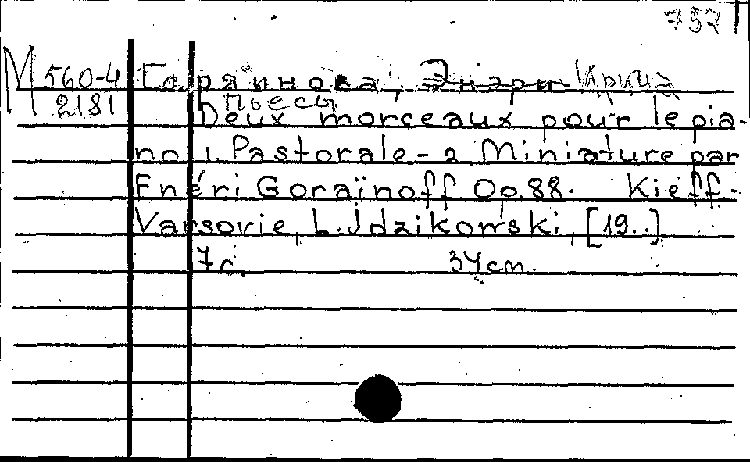 757
М 560-4 Горяинова, Энери Ирина
2181 Пьесы
Deux morceaux pour le pia-
no 1. Pastorale - 2 Miniature par
Enéri Goraïnoff Op. 88. Kieff-
Varsovie, L. Idzikowski, [19..]
7 с. 34 cm.